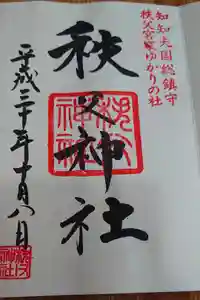 知知夫国総鎮守
秩父宮家ゆかりの社
秩父神社
平成三十年十月八日
秩父
神社